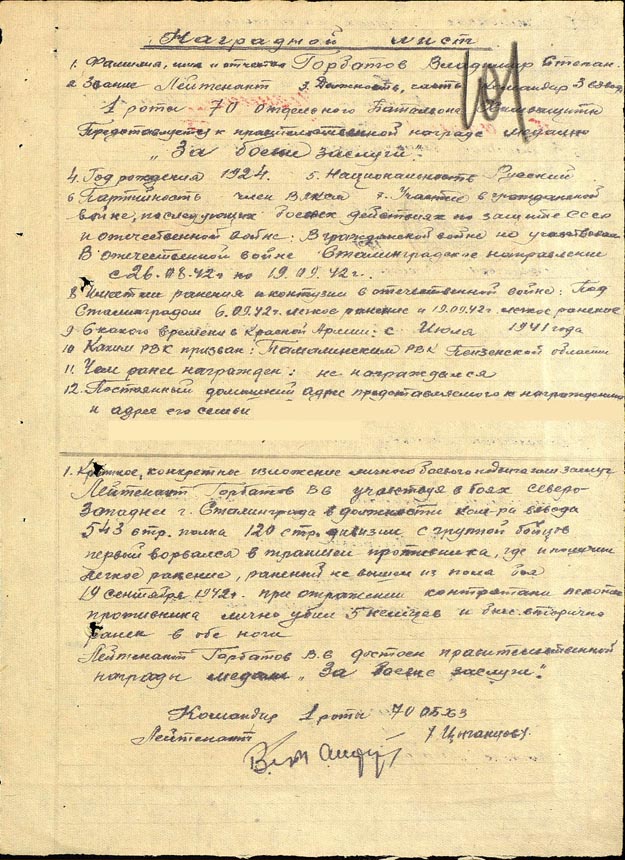 Наградной лист
101
1. Фамилия, имя и отчество Горбатов Владимир Степан.
2. Звание Лейтенант 3. Должность, часть командир 3 взвод.
1 роты 70 отдельного Батальона Химзащиты
Представляется к правительственной награде медалью
"За боевые заслуги."
4. Год рождения 1924. 5. Национальность Русский
6 Партийность член ВЛКСМ 7. Участие в гражданской
войне, последующих боевых действиях по защите СССР
и отечественной войне: В гражданской войне не участвовал
В отечественной войне Сталинградское направление
с 26.08.42г по 19.09.42г.
8 Имеет ли ранения и контузии в отечественной войне: Под
Сталинградом 6.09.42г. легкое ранение и 19.09.42г. легкое ранение
9 С какого времени в Красной Армии: с Июля 1941 года
10 Каким РВК призван: РВК Пензенской области
11. Чем ранее награжден: не награждался
12. Постоянный домашний адрес представляемого к награждению
и адрес его семьи
1. Краткое, конкретное изложение личного боевого подвига или заслуг
Лейтенант Горбатов В.С участвуя в боях Северо-
Западнее г. Сталинграда в должности ком-ра взвода
543 стр. полка 120 стр. дивизии с группой бойцов
первый ворвался в траншеи противника, где и получил
легкое ранение, раненый не вышел из поля боя
19 сентября 1942г. при отражении контратаки пехоты
противника лично убил 5 немцев и был вторично
ранен в обе ноги
Лейтенант Горбатов В.С достоен правительственной
награды медали "За Боевые заслуги."
Командир 1 роты 70 ОБХЗ
Лейтенант /Цыганцов/